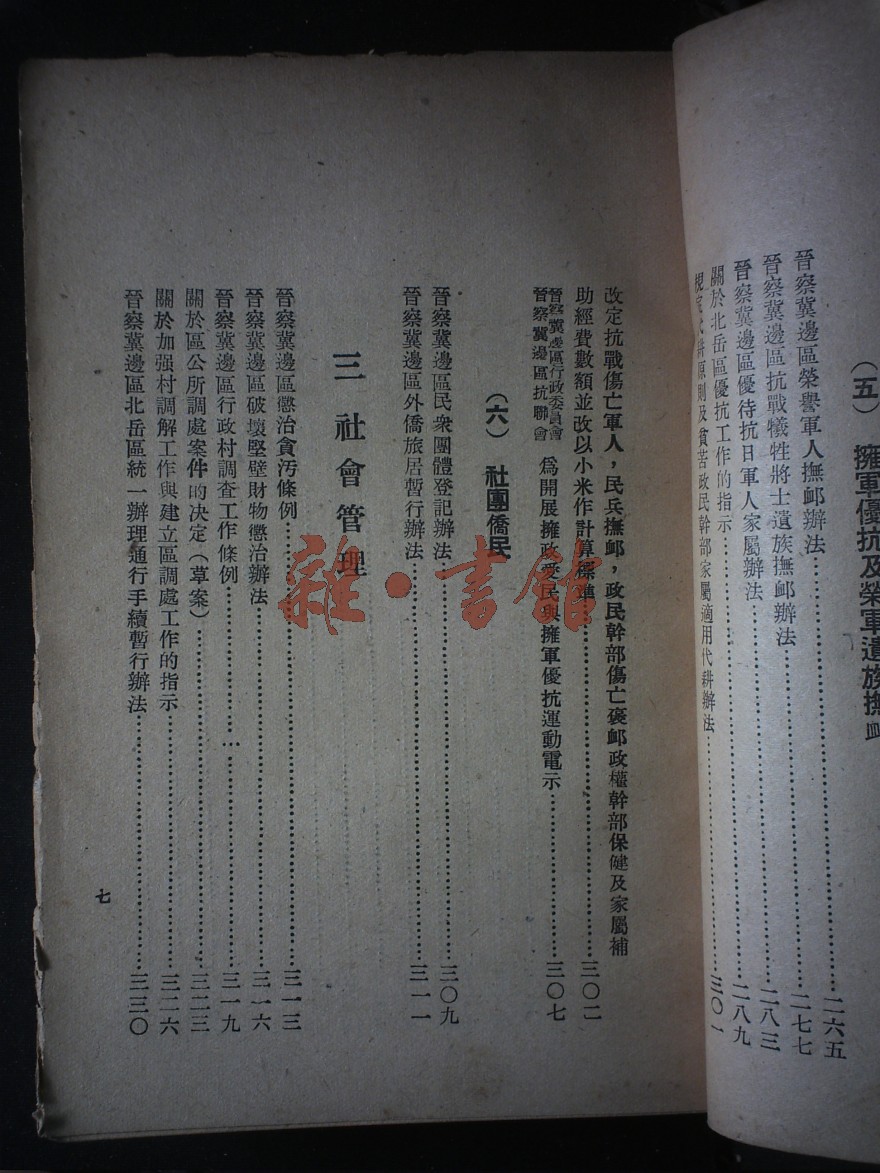 (五) 擁軍優抗及榮軍遺族撫卹
晉察冀邊區榮譽軍人撫卹辦法…………二六五
晉察冀邊區抗戰犧牲將士遺族撫卹辦法…………二七七
晉察冀邊區優待抗日軍人家屬辦法…………二八三
關於北岳區優抗工作的指示…………二八九
規定代耕原則及貧苦政民幹部家屬適用代耕辦法…………三〇一
改定抗戰傷亡軍人，民兵撫卹，政民幹部傷亡褒卹政權幹部保健及家屬補
助經費數額並改以小米作計算標準…………三〇二
晉察冀邊區行政委員會
晉察冀邊區抗聯會
為開展擁政愛民與擁軍優抗運動電示…………三〇七
(六) 社團僑民
晉察冀邊區民衆團體登記辦法…………三〇九
晉察冀邊區外僑旅居暫行辦法…………三一一
三 社會管理
晉察冀邊區懲治貪污條例…………三一三
晉察冀邊區破壞堅壁財物懲治辦法…………三一六
晉察冀邊區行政村調查工作條例…………三一九
關於區公所調處案件的决定(草案)…………三二三
關於加强村調解工作與建立區調處工作的指示…………三二六
晉察冀邊區北岳區統一辦理通行手續暫行辦法…………三三〇
七
雜·書館